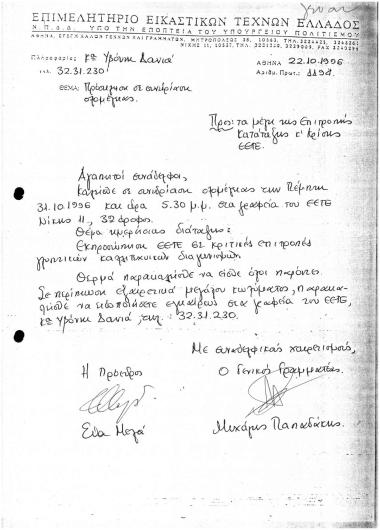 ΕΠΙΜΕΛΗΤΗΡΙΟ ΕΙΚΑΣΤΙΚΩΝ ΤΕΧΝΩΝ ΕΛΛΑΔΟΣ
Ν.Π.Δ.Δ. ΥΠΟ ΤΗΝ ΕΠΟΠΤΕΙΑ ΤΟΥ ΥΠΟΥΡΓΕΙΟΥ ΠΟΛΙΤΙΣΜΟΥ
ΑΘΗΝΑ, ΜΗΤΡΟΠΟΛΕΩΣ 38, 10563, ΤΗΛ.
ΝΙΚΗΣ 11, 10557, ΤΗΛ.
Πληροφορίες: κα Υβόννη Δανιά
τηλ. 32.31.230
ΑΘΗΝΑ 22.10.1996
Αριθμ. Πρωτ.:
ΘΕΜΑ: Πρόσκληση σε συνεδρίαση
ολομέλειας.
Προς: τα μέλη της Επιτροπής
Κατάταξης κ' Κρίσης
ΕΕΤΕ.
Αγαπητοί συνάδελφοι,
Καλείσθε σε συνεδρίαση ολομέλειας την Πέμπτη
31.10.1996 και ώρα 5.30 μ.μ. στα γραφεία του ΕΕΤΕ
Νίκης 11, 3ος όροφος.
Θέμα ημερήσιας διάταξης:
Εκπροσώπηση ΕΕΤΕ σε κριτικές επιτροπές
γλυπτικών καλλιτεχνικών διαγωνισμών.
Θερμά παρακαλείσθε να είσθε όλοι παρόντες.
Σε περίπτωση εξαιρετικά μεγάλου κωλύματος, παρακα-
λείσθε να ειδοποιήσετε εγκαίρως στα γραφεία του ΕΕΤΕ,
κα Υβόννη Δανιά τηλ.: 32.31.230.
Με συναδελφικούς χαιρετισμούς,
Η Πρόεδρος
Ο Γενικός Γραμματέας
Εύα Μελά
Μιχάλης Παπαδάκης.